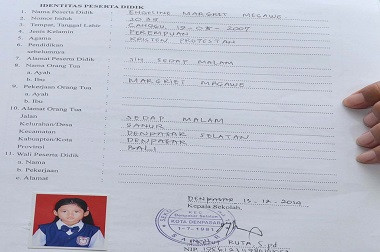 IDENTITAS PESERTA DIDIK
1. Nama Peserta Didik ENGELINE MARGRIET MEGAWE
2. Nomor Induk
3. Tempat, Tanggal Lahir CANGGU, 19-05-2007
4. Jenis Kelamin PEREMPUAN
5. Agama KRISTEN PROTESTAN
6. Pendidikan
sebelumnya
7. Alamat Peserta Didik JLN SEDAP MALAM
8. Nama Orang Tua
a. Ayah
b. Ibu MARGRIET MEGAWE
9. Pekerjaan Orang Tua
a. Ayah
b. Ibu
10. Alamat Orang Tua
Jalan SEDAP MALAM
Kelurahan/Desa SANUR
Kecamatan DENPASAR SELATAN
Kabupaten/Kota DENPASAR
Provinsi BALI
11. Wali Peserta Didik
a. Nama
b. Pekerjaan
c. Alamat
DENPASAR, 13-12-2014
Kepala Sekolah,
KOTA DENPASAR
1-7-1981
RUTA, S.Pd
NIP